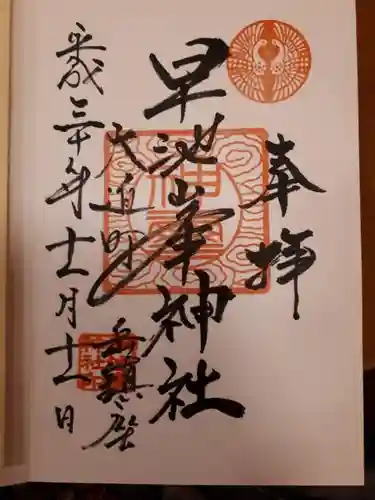 奉拝
早池峯神社
大迫町
岳鎮座
平成三十年十一月十一日